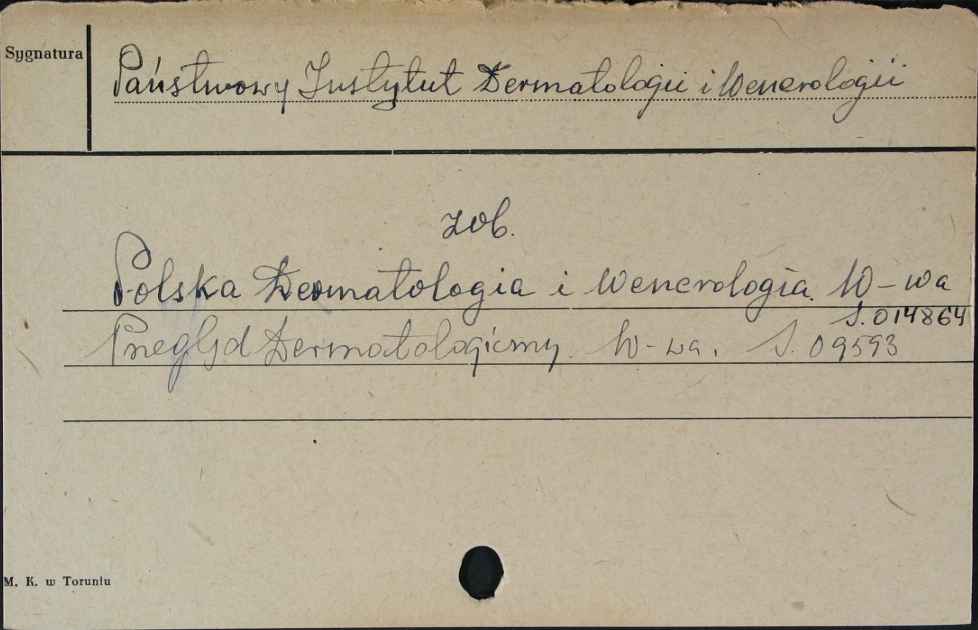 Sygnatura
Państwowy Instytut Dermatologii i Wenerologii
zob.
Polska Dermatologia i Wenerologia. W-wa
S. 014864
Przegląd Dermatologiczny. W-wa. S. 09593
M. K. w Toruniu